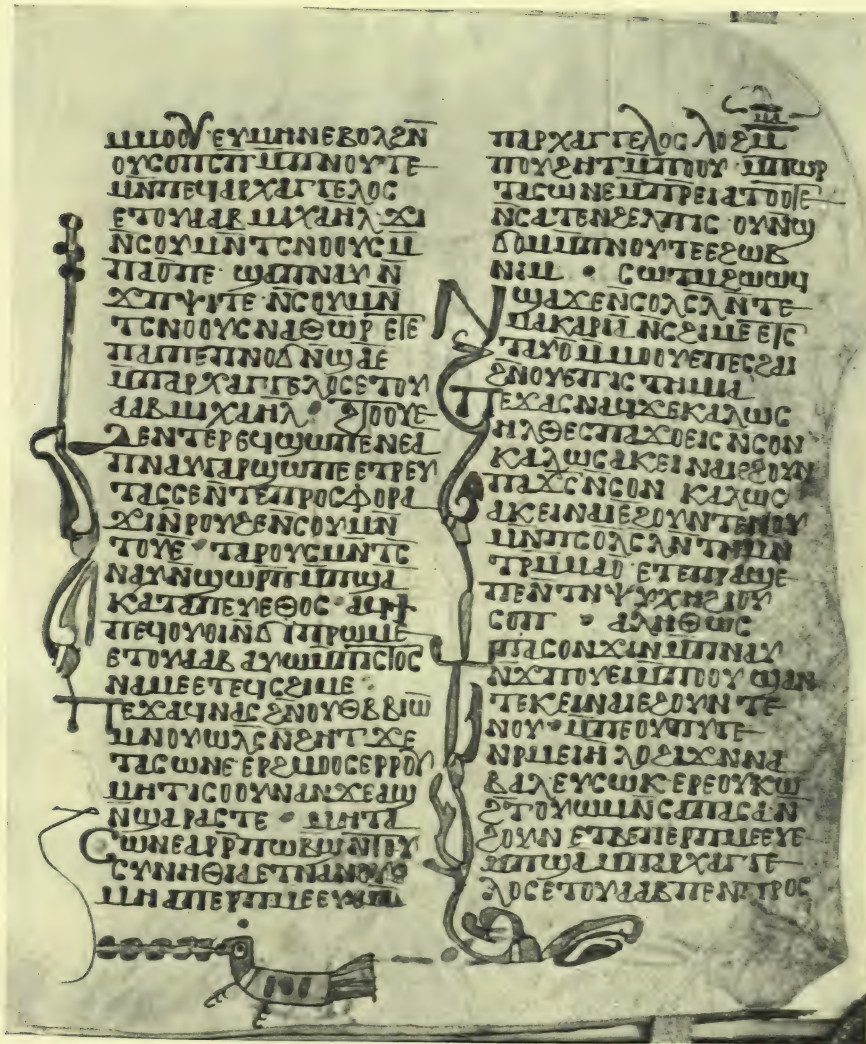 ⲙⲙⲟⲟⲩ ⲉⲩⲙⲏⲛ ⲉⲃⲟⲗ ϩⲛ
ⲟⲩⲥⲟⲡⲥⲡ ⲙⲡⲛⲟⲩⲧⲉ
ⲙⲛ ⲡⲉϥⲁⲣⲭⲁⲅⲅⲉⲗⲟⲥ
ⲉⲧⲟⲩⲁⲁⲃ ⲙⲓⲭⲁⲏⲗ ϫⲓ
ⲛⲥⲟⲩⲙⲛⲧⲥⲛⲟⲟⲩⲥ ⲙ
ⲡⲁⲟⲡⲉ ϣⲁⲡⲛⲁⲩ ⲛ
ϫⲡⲯⲓⲧⲉ ⲛⲥⲟⲩⲙⲛ
ⲧⲥⲛⲟⲟⲩⲥ ⲛⲁⲑⲱⲣ ⲉⲧⲉ
ⲡⲁⲓ ⲡⲉ ⲡⲛⲟϭ ⲛϣⲁⲉ
ⲙⲡⲁⲣⲭⲁⲅⲅⲉⲗⲟⲥ ⲉⲧⲟⲩ
ⲁⲁⲃ ⲙⲓⲭⲁⲏⲗ · ϩⲧⲟⲟⲩⲉ
ⲇⲉ ⲛⲧⲉⲣⲉϥϣⲱⲡⲉ ⲛⲉⲁ
ⲡⲛⲁⲩ ⲅⲁⲣ ϣⲱⲡⲉ ⲉⲧⲣⲉⲩ
ⲧⲁⲥⲥⲉ ⲛⲧⲉⲡⲣⲟⲥⲫⲟⲣⲁ
ϫⲓⲛⲣⲟⲩϩⲉ ⲛⲥⲟⲩⲙⲛ
ⲧⲟⲩⲉ · ⲧⲁⲣⲟⲩⲥⲙⲛⲧⲥ
ⲛⲁⲩ ⲛϣⲱⲣⲡ ⲙⲡϣⲁ
ⲕⲁⲧⲁ ⲡⲉⲩⲉⲑⲟⲥ · ⲁϥϯ
ⲡⲉϥⲟⲩⲟⲓ ⲛϭⲓ ⲡⲣⲱⲙⲉ
ⲉⲧⲟⲩⲁⲁⲃ ⲁⲩⲱ ⲙⲡⲓⲥⲧⲟⲥ
ⲛⲁⲙⲉ ⲉⲧⲉϥⲥϩⲓⲙⲉ ·
ⲡⲉϫⲁϥ ⲛⲁⲥ ϩⲛⲟⲩⲑⲃⲃⲓⲱ
ⲙⲛⲟⲩⲱⲗⲥ ⲛϩⲏⲧ ϫⲉ
ⲧⲁⲥⲱⲛⲉ ⲉⲣϩⲙⲟⲟⲥ ⲉⲣⲣⲟⲩ
ⲙⲏ ⲧⲓⲥⲟⲟⲩⲛ ⲁⲛ ϫⲉ ⲁϣ
ⲛϣⲁ ⲣⲁⲥⲧⲉ · ⲙⲏ ⲧⲁ
ⲥⲱⲛⲉ ⲁⲣⲣⲡⲱⲃϣ ⲛⲧⲟⲩ
ⲥⲩⲛⲏⲑⲓⲁ ⲉⲧⲛⲁⲛⲟⲩⲥ
ⲙⲏ ⲁⲡⲉⲣⲡⲙⲉⲉⲩⲉ ⲙ
ⲡⲁⲣⲭⲁⲅⲅⲉⲗⲟⲥ ⲗⲟ ϩⲙ
ⲡⲟⲩϩⲏⲧ ⲙⲡⲟⲟⲩ · ⲙⲡⲱⲣ
ⲧⲁⲥⲱⲛⲉ ⲙⲡⲣⲉⲓⲁⲧⲟⲟⲧⲉ
ⲛⲥⲁ ⲧⲉⲛϩⲉⲗⲡⲓⲥ ⲟⲩⲛϣ
ϭⲟⲙ ⲙⲡⲛⲟⲩⲧⲉ ⲉϩⲱⲃ
ⲛⲓⲙ · ⲥⲱⲧⲙ ϩⲱⲱϥ
ⲛϣⲁϫⲉ ⲛⲥⲟⲗⲥⲗ ⲛⲧⲉ
ⲙⲁⲕⲁⲣⲓⲁ ⲛⲥϩⲓⲙⲉ ⲉⲥ
ⲧⲁⲩⲟ ⲙⲙⲟⲟⲩ ⲉⲡⲉⲥϩⲁⲓ
ϩⲛⲟⲩⲉⲡⲓⲥⲧⲏⲙⲏ
ⲡⲉϫⲁⲥ ⲛⲁϥ ϫⲉ ⲕⲁⲗⲱⲥ
ⲏⲗⲑⲉⲥ ⲡⲁϫⲟⲉⲓⲥ ⲛⲥⲟⲛ
ⲕⲁⲗⲱⲥ ⲁⲕⲉⲓ ⲛⲁⲓ ⲉϩⲟⲩⲛ
ⲡⲁϫⲥ ⲛⲥⲟⲛ ⲕⲁⲗⲱⲥ
ⲁⲕⲉⲓ ⲛⲁⲓ ⲉϩⲟⲩⲛ ⲧⲉⲛⲟⲩ
ⲙⲛ ⲡⲥⲟⲗⲥⲗ ⲛⲧⲙⲛ
ⲧⲣⲙⲙⲁⲟ ⲉⲧⲉ ⲡⲣⲁϣⲉ
ⲡⲉ ⲛⲧⲛⲯⲩⲭⲏ ϩⲓⲟⲩ
ⲥⲟⲡ · ⲁⲗⲏⲑⲱⲥ
ⲡⲁⲥⲟⲛ ϫⲓⲛ ⲙⲡⲛⲁⲩ
ⲛϫⲡⲟⲩⲉⲓ ⲙⲡⲟⲟⲩ ϣⲁⲛ
ⲧⲉⲕⲉⲓ ⲛⲁⲓ ⲉϩⲟⲩⲛ ⲧⲉ
ⲛⲟⲩ · ⲙⲡⲉ ⲟⲩⲧⲗⲧⲉ
ⲛⲣⲙⲉⲓⲏ ⲗⲟ ϩⲓϫⲛ ⲛⲁ
ⲃⲁⲗ ⲉⲩⲥⲱⲕ ⲉⲣⲉ ⲟⲩⲕⲱ
ϩⲧ ⲟⲩⲱⲙ ⲛⲥⲁ ⲡⲁⲥⲁⲛ
ϩⲟⲩⲛ ⲉⲧⲃⲉ ⲡⲉⲣⲡⲙⲉⲉⲩⲉ
ⲙⲡϣⲁ ⲙⲡⲁⲣⲭⲁⲅⲅⲉ
ⲗⲟⲥ ⲉⲧⲟⲩⲁⲁⲃ ⲡⲉⲛⲡⲣⲟⲥ